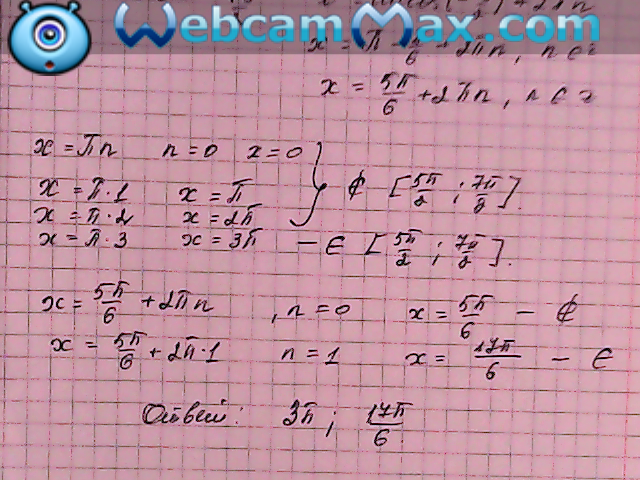 WebcamMax.com
x = π − π/6 + 2πn, n ∈ z
x = 5π/6 + 2πn, n ∈ z
x = πn n = 0 x = 0
x = π·1 x = π } ∉ [5π/2 ; 7π/2].
x = π·2 x = 2π
x = π·3 x = 3π – ∈ [5π/2 ; 7π/2].
x = 5π/6 + 2πn , n = 0 x = 5π/6 – ∉
x = 5π/6 + 2π·1 n = 1 x = 17π/6 – ∈
Ответ: 3π ; 17π/6